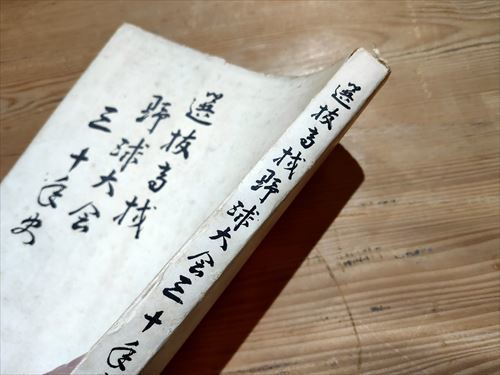 選抜高校
野球大会
三十年史
選抜高校野球大会三十年